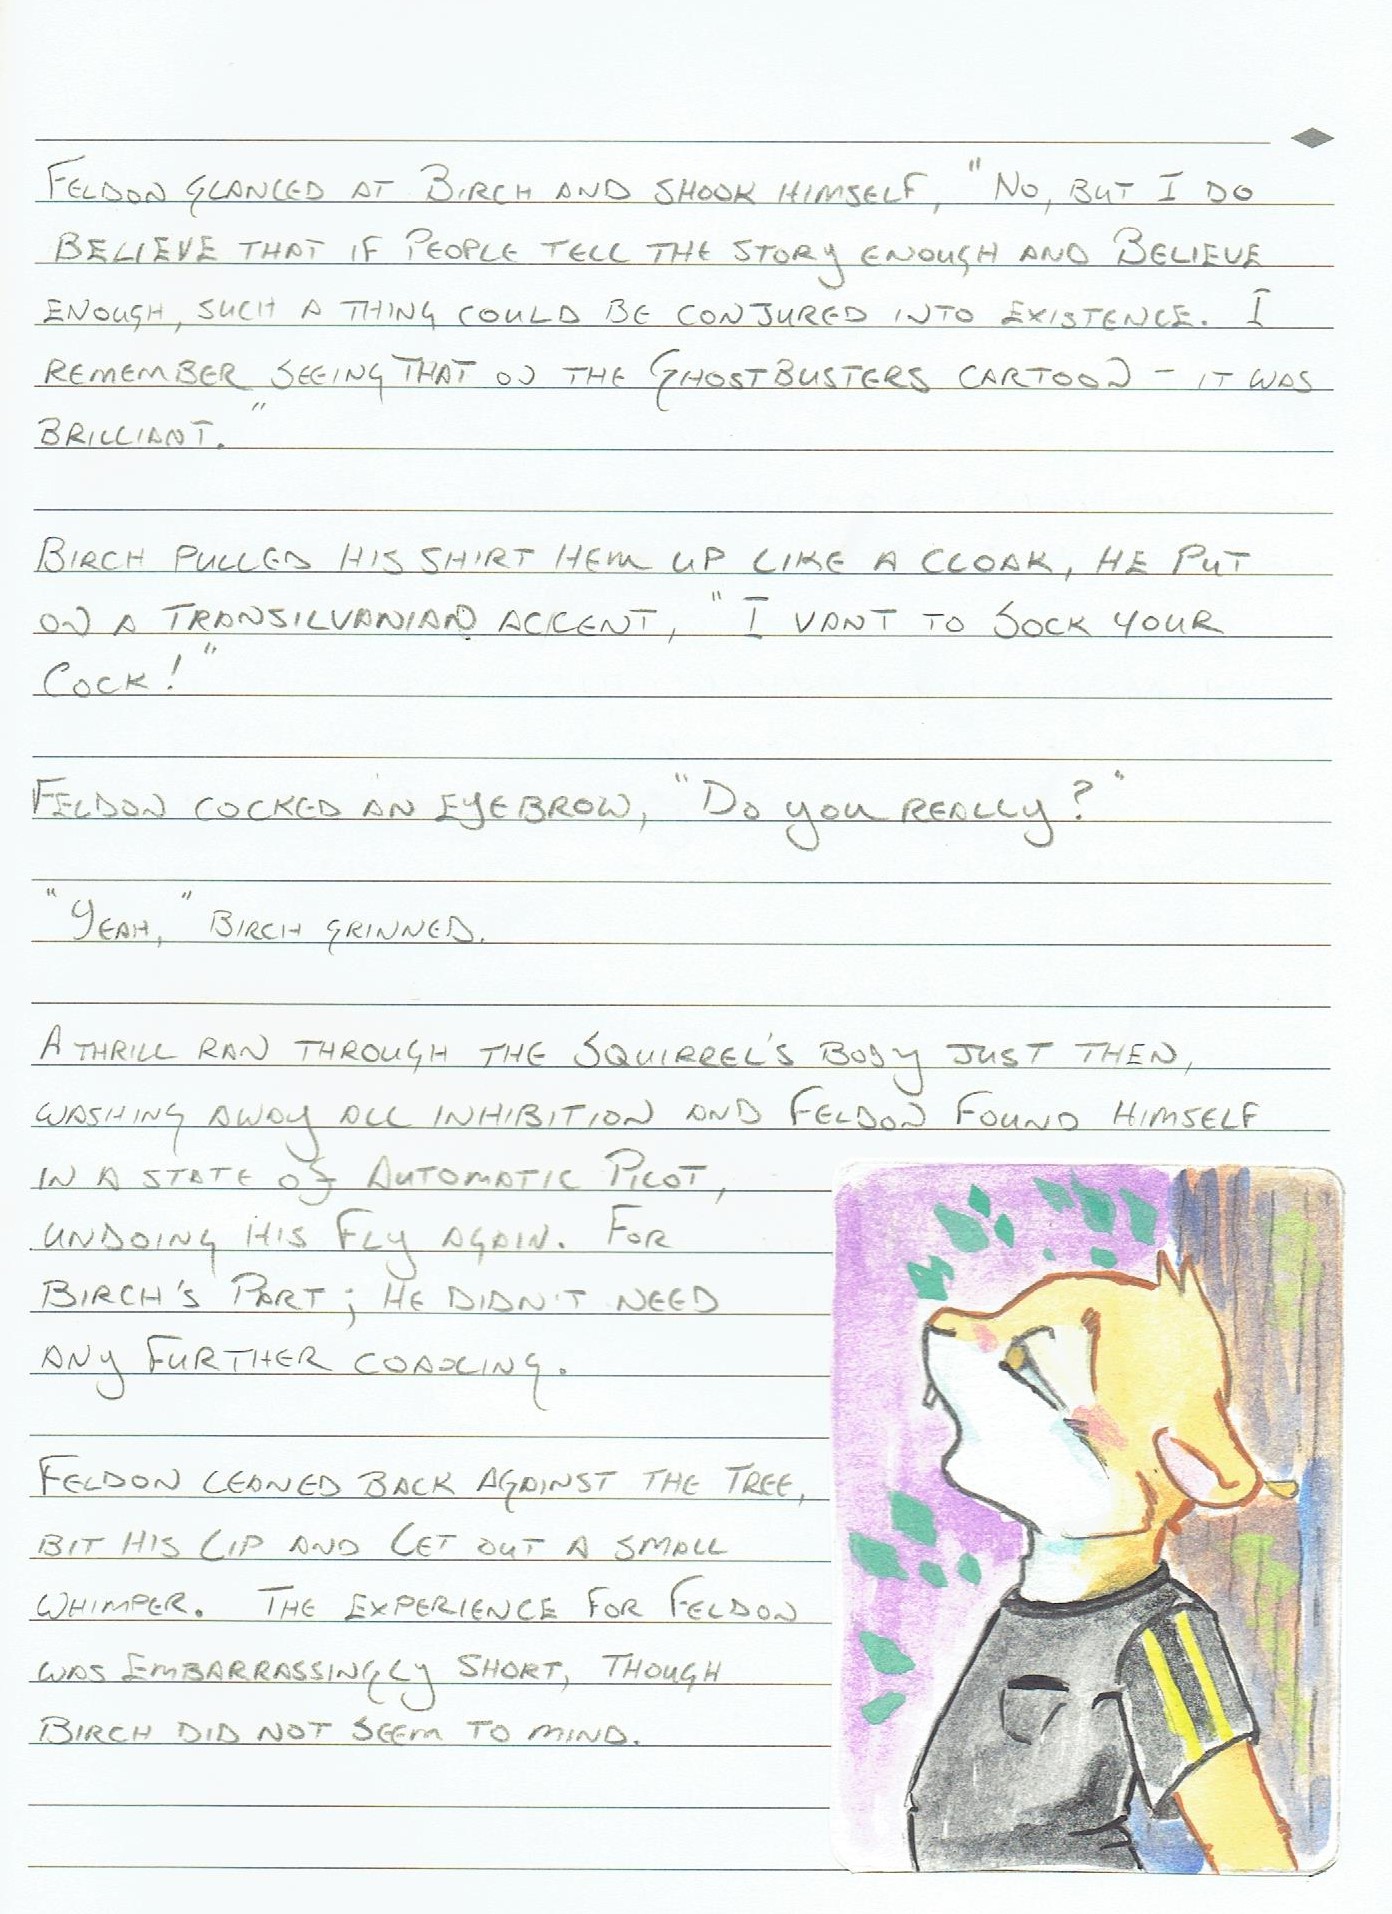 FELDON GLANCED AT BIRCH AND SHOOK HIMSELF, "NO, BUT I DO
BELIEVE THAT IF PEOPLE TELL THE STORY ENOUGH AND BELIEVE
ENOUGH, SUCH A THING COULD BE CONJURED INTO EXISTENCE. I
REMEMBER SEEING THAT ON THE GHOSTBUSTERS CARTOON - IT WAS
BRILLIANT."
BIRCH PULLED HIS SHIRT HEM UP LIKE A CLOAK, HE PUT
ON A TRANSILVANIAN ACCENT, "I VANT TO SOCK YOUR
COCK!"
FELDON COCKED AN EYEBROW, "DO YOU REALLY?"
"YEAH," BIRCH GRINNED.
A THRILL RAN THROUGH THE SQUIRREL'S BODY JUST THEN,
WASHING AWAY ALL INHIBITION AND FELDON FOUND HIMSELF
IN A STATE OF AUTOMATIC PILOT,
UNDOING HIS FLY AGAIN. FOR
BIRCH'S PART; HE DIDN'T NEED
ANY FURTHER COAXING.
FELDON LEANED BACK AGAINST THE TREE,
BIT HIS LIP AND LET OUT A SMALL
WHIMPER. THE EXPERIENCE FOR FELDON
WAS EMBARRASSINGLY SHORT, THOUGH
BIRCH DID NOT SEEM TO MIND.